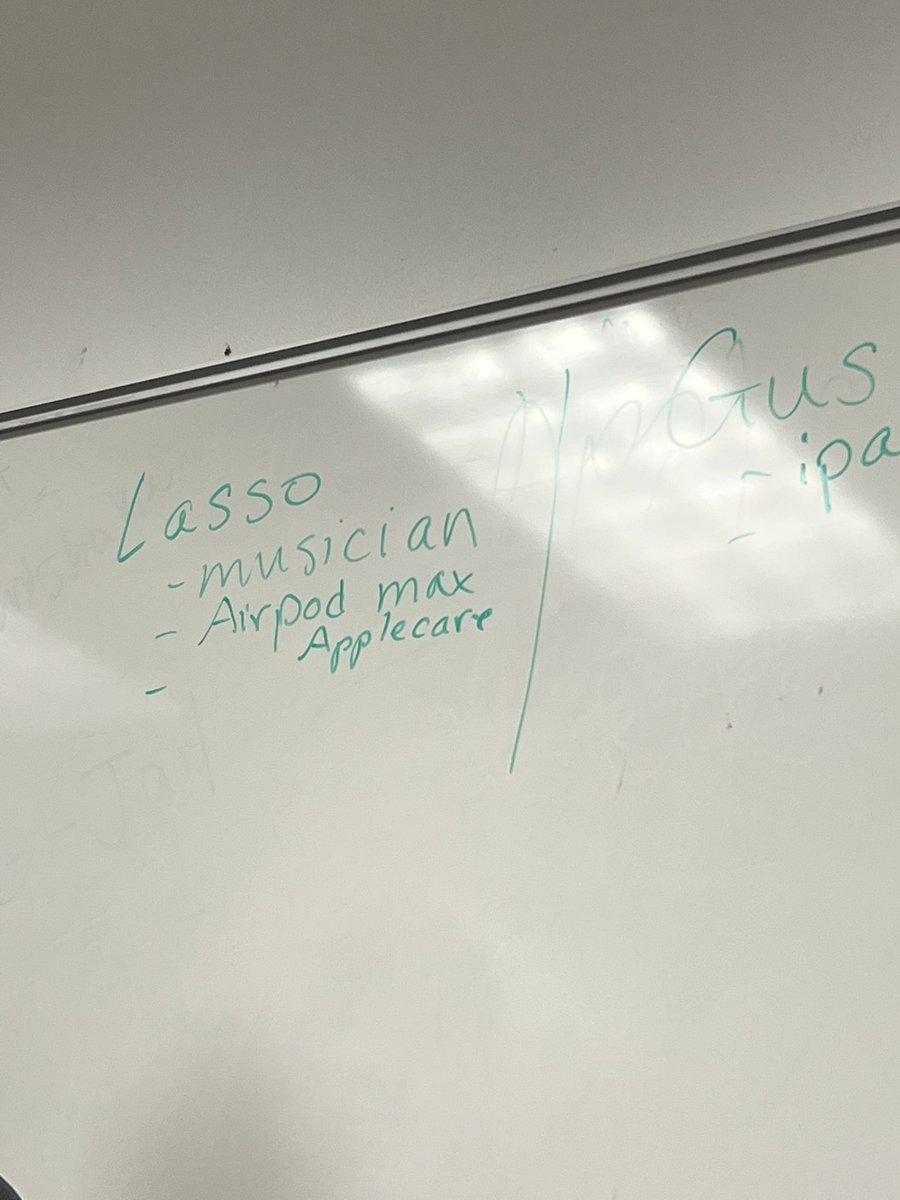 Lasso
- musician
- Airpod max
Applecare
-
Gus
- ipa
-